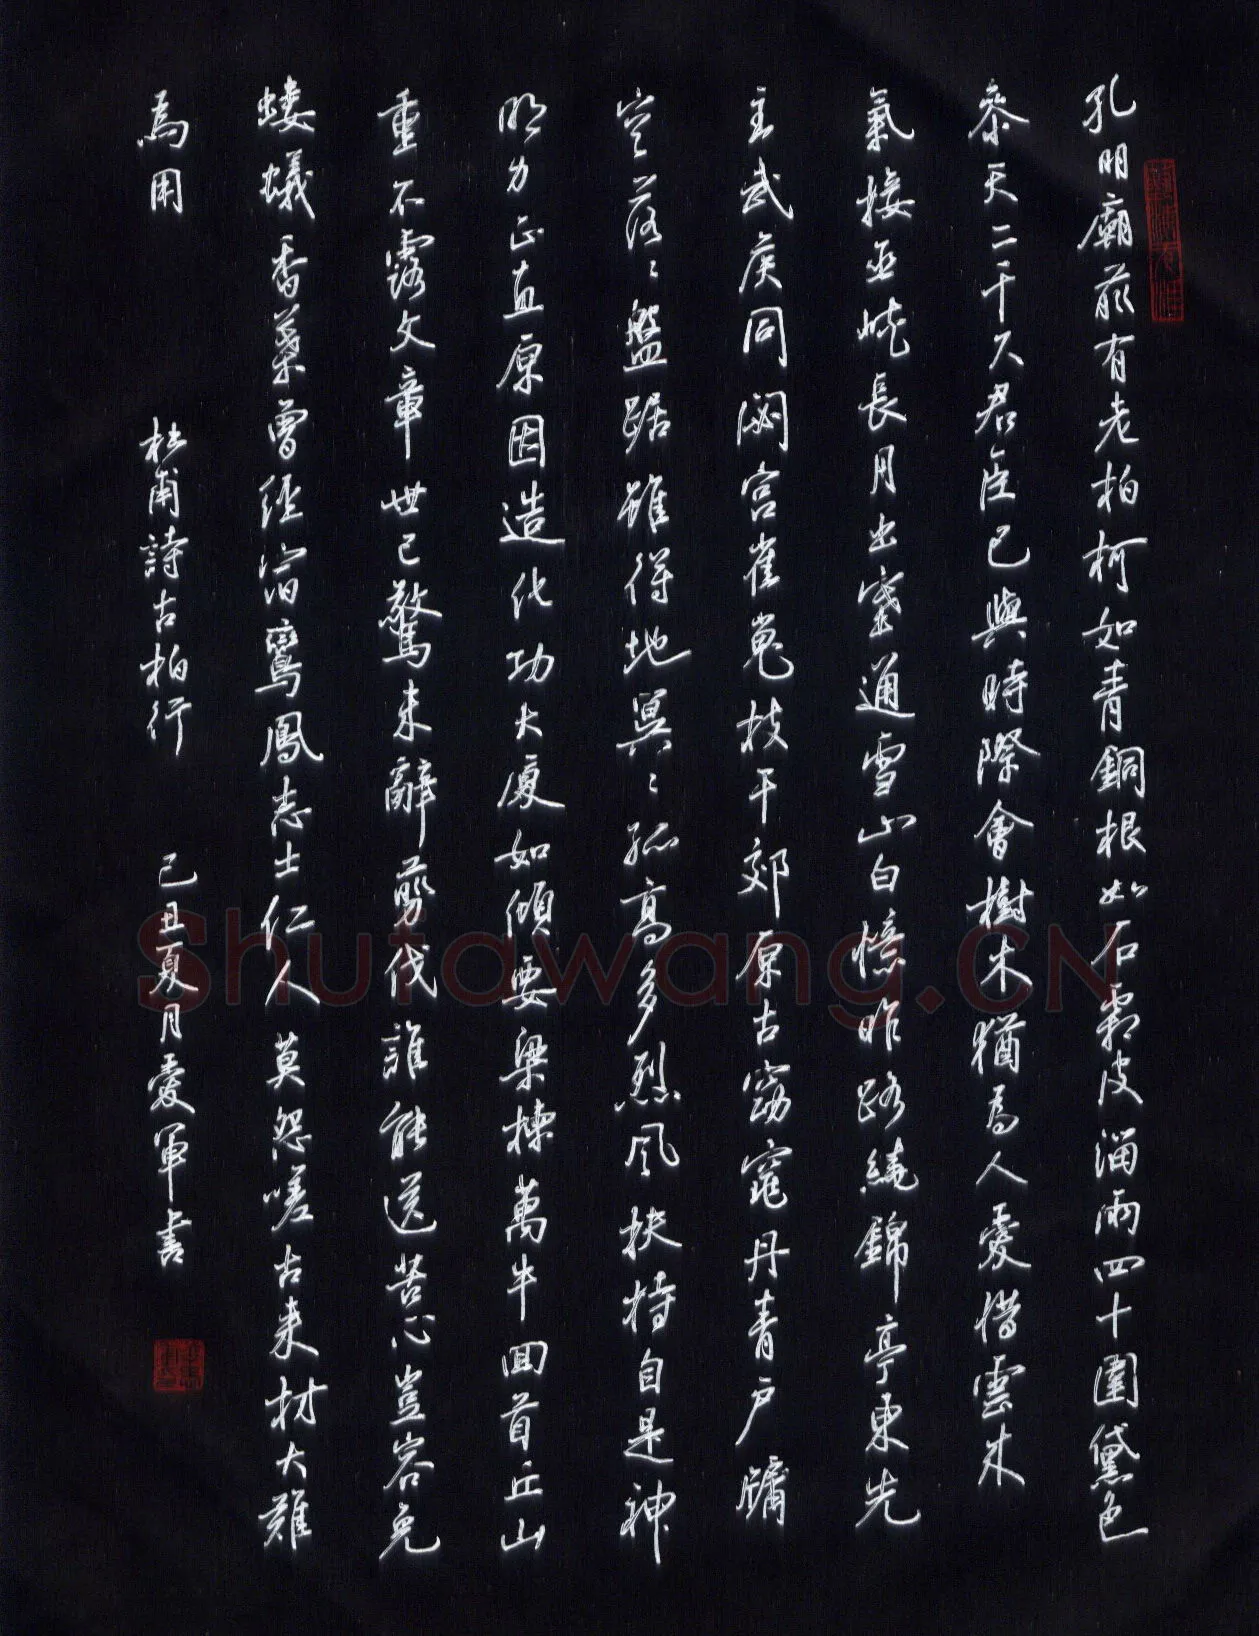 孔明廟前有老柏柯如青銅根如石霜皮溜雨四十圍黛色
參天二千尺君臣已與時際會樹木猶為人愛惜雲來
氣接巫峽長月出寒通雪山白憶昨路繞錦亭東先
主武侯同閟宮崔嵬枝干郊原古窈窕丹青戶牖
空落〻盤踞雖得地冥〻孤高多烈風扶持自是神
明力正直原因造化功大廈如傾要梁棟萬牛回首丘山
重不露文章世已驚未辭剪伐誰能送苦心豈容免
螻蟻香葉曾經宿鸞鳳志士仁人莫怨嗟古來材大難
為用 杜甫詩古柏行 己丑夏月愛軍書
Shufawang.CN